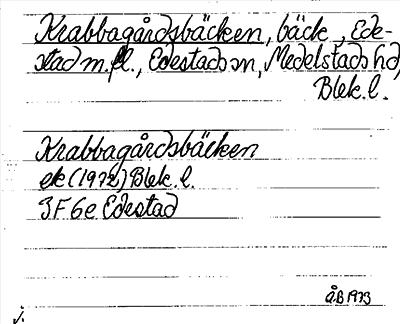 Krabbagårdsbäcken, bäck, Ede-
stad m.fl., Edestads sn, Medelstads hd,
Blek.l.
Krabbagårdsbäcken
ek (1972) Blek.l.
3F 6e Edestad
ÅB 1973